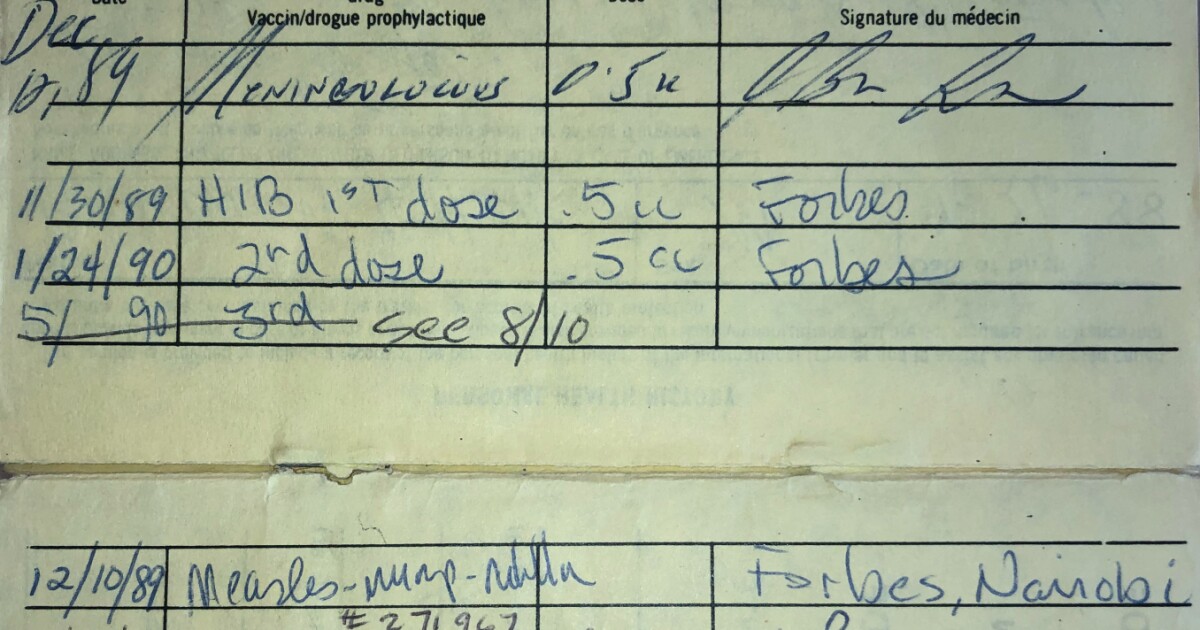 Vaccin/drogue prophylactique Signature du médecin
Dec
12, 89 Meningococcus 0.5cc
11/30/89 HIB 1ST dose .5 cc Forbes
1/24/90 2nd dose .5 cc Forbes
5/ 90 3rd see 8/10
12/10/89 Measles-mump-rubella Forbes, Nairobi
# 271967